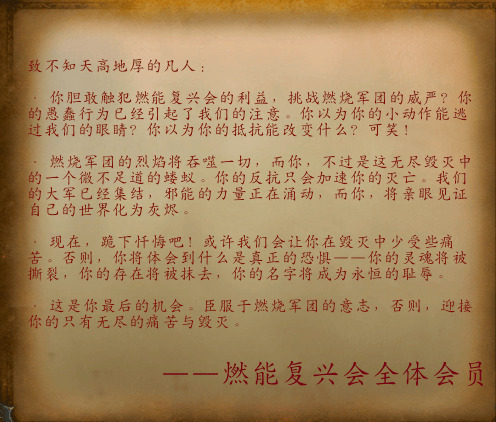 致不知天高地厚的凡人：
· 你胆敢触犯燃能复兴会的利益，挑战燃烧军团的威严？你
的愚蠢行为已经引起了我们的注意。你以为你的小动作能逃
过我们的眼睛？你以为你的抵抗能改变什么？可笑！
· 燃烧军团的烈焰将吞噬一切，而你，不过是这无尽毁灭中
的一个微不足道的蝼蚁。你的反抗只会加速你的灭亡。我们
的大军已经集结，邪能的力量正在涌动，而你，将亲眼见证
自己的世界化为灰烬。
· 现在，跪下忏悔吧！或许我们会让你在毁灭中少受些痛
苦。否则，你将体会到什么是真正的恐惧——你的灵魂将被
撕裂，你的存在将被抹去，你的名字将成为永恒的耻辱。
· 这是你最后的机会。臣服于燃烧军团的意志，否则，迎接
你的只有无尽的痛苦与毁灭。
——燃能复兴会全体会员